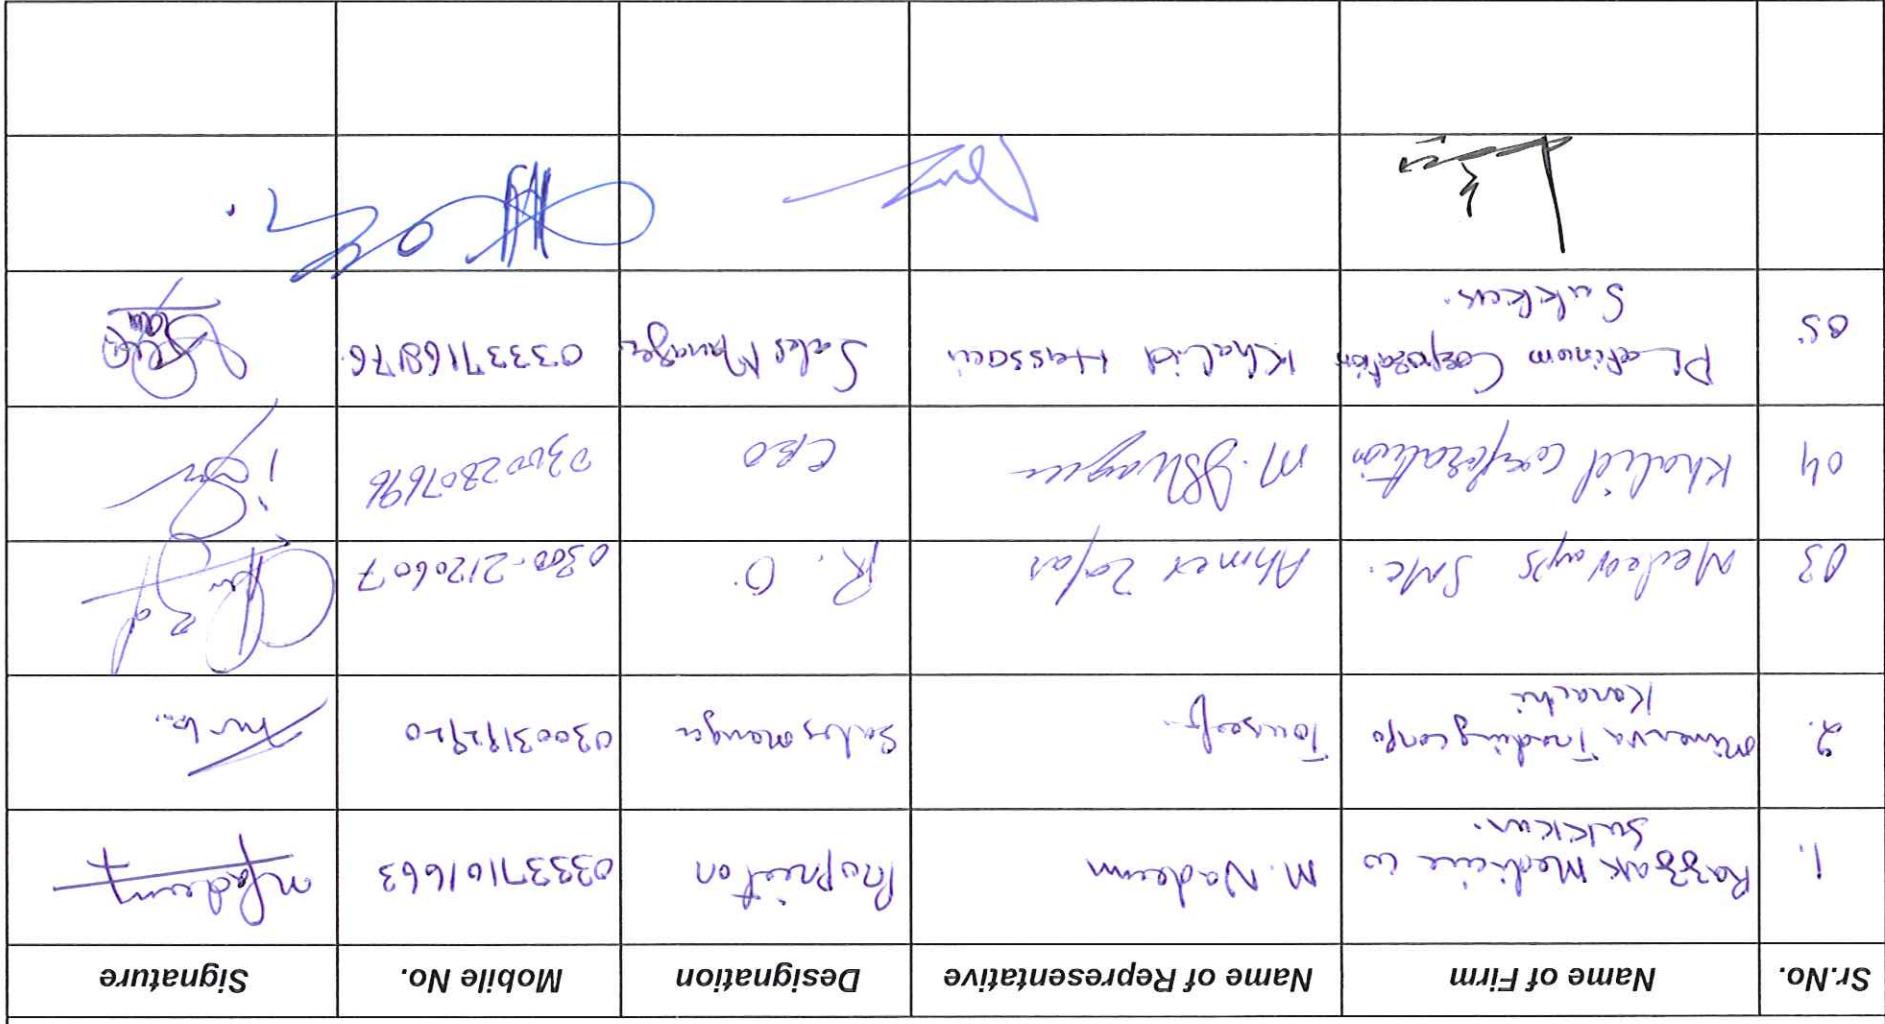 Sr.No. Name of Firm Name of Representative Designation Mobile No. Signature
1. Razzak Medicine co M. Nadeem Propritor 03337101663
Sukkur.
2. Minerva Trading corpo Touseef Sales manager 03003192920
Karachi
03 Medeways SMC. Ahmer Zafar R. O. 0300-2120607
04 Khalid corporation M. CEO 03002807696
05. Platinum Corporation Khalid Hussain Sales Manager 03337168176
Sukkur.